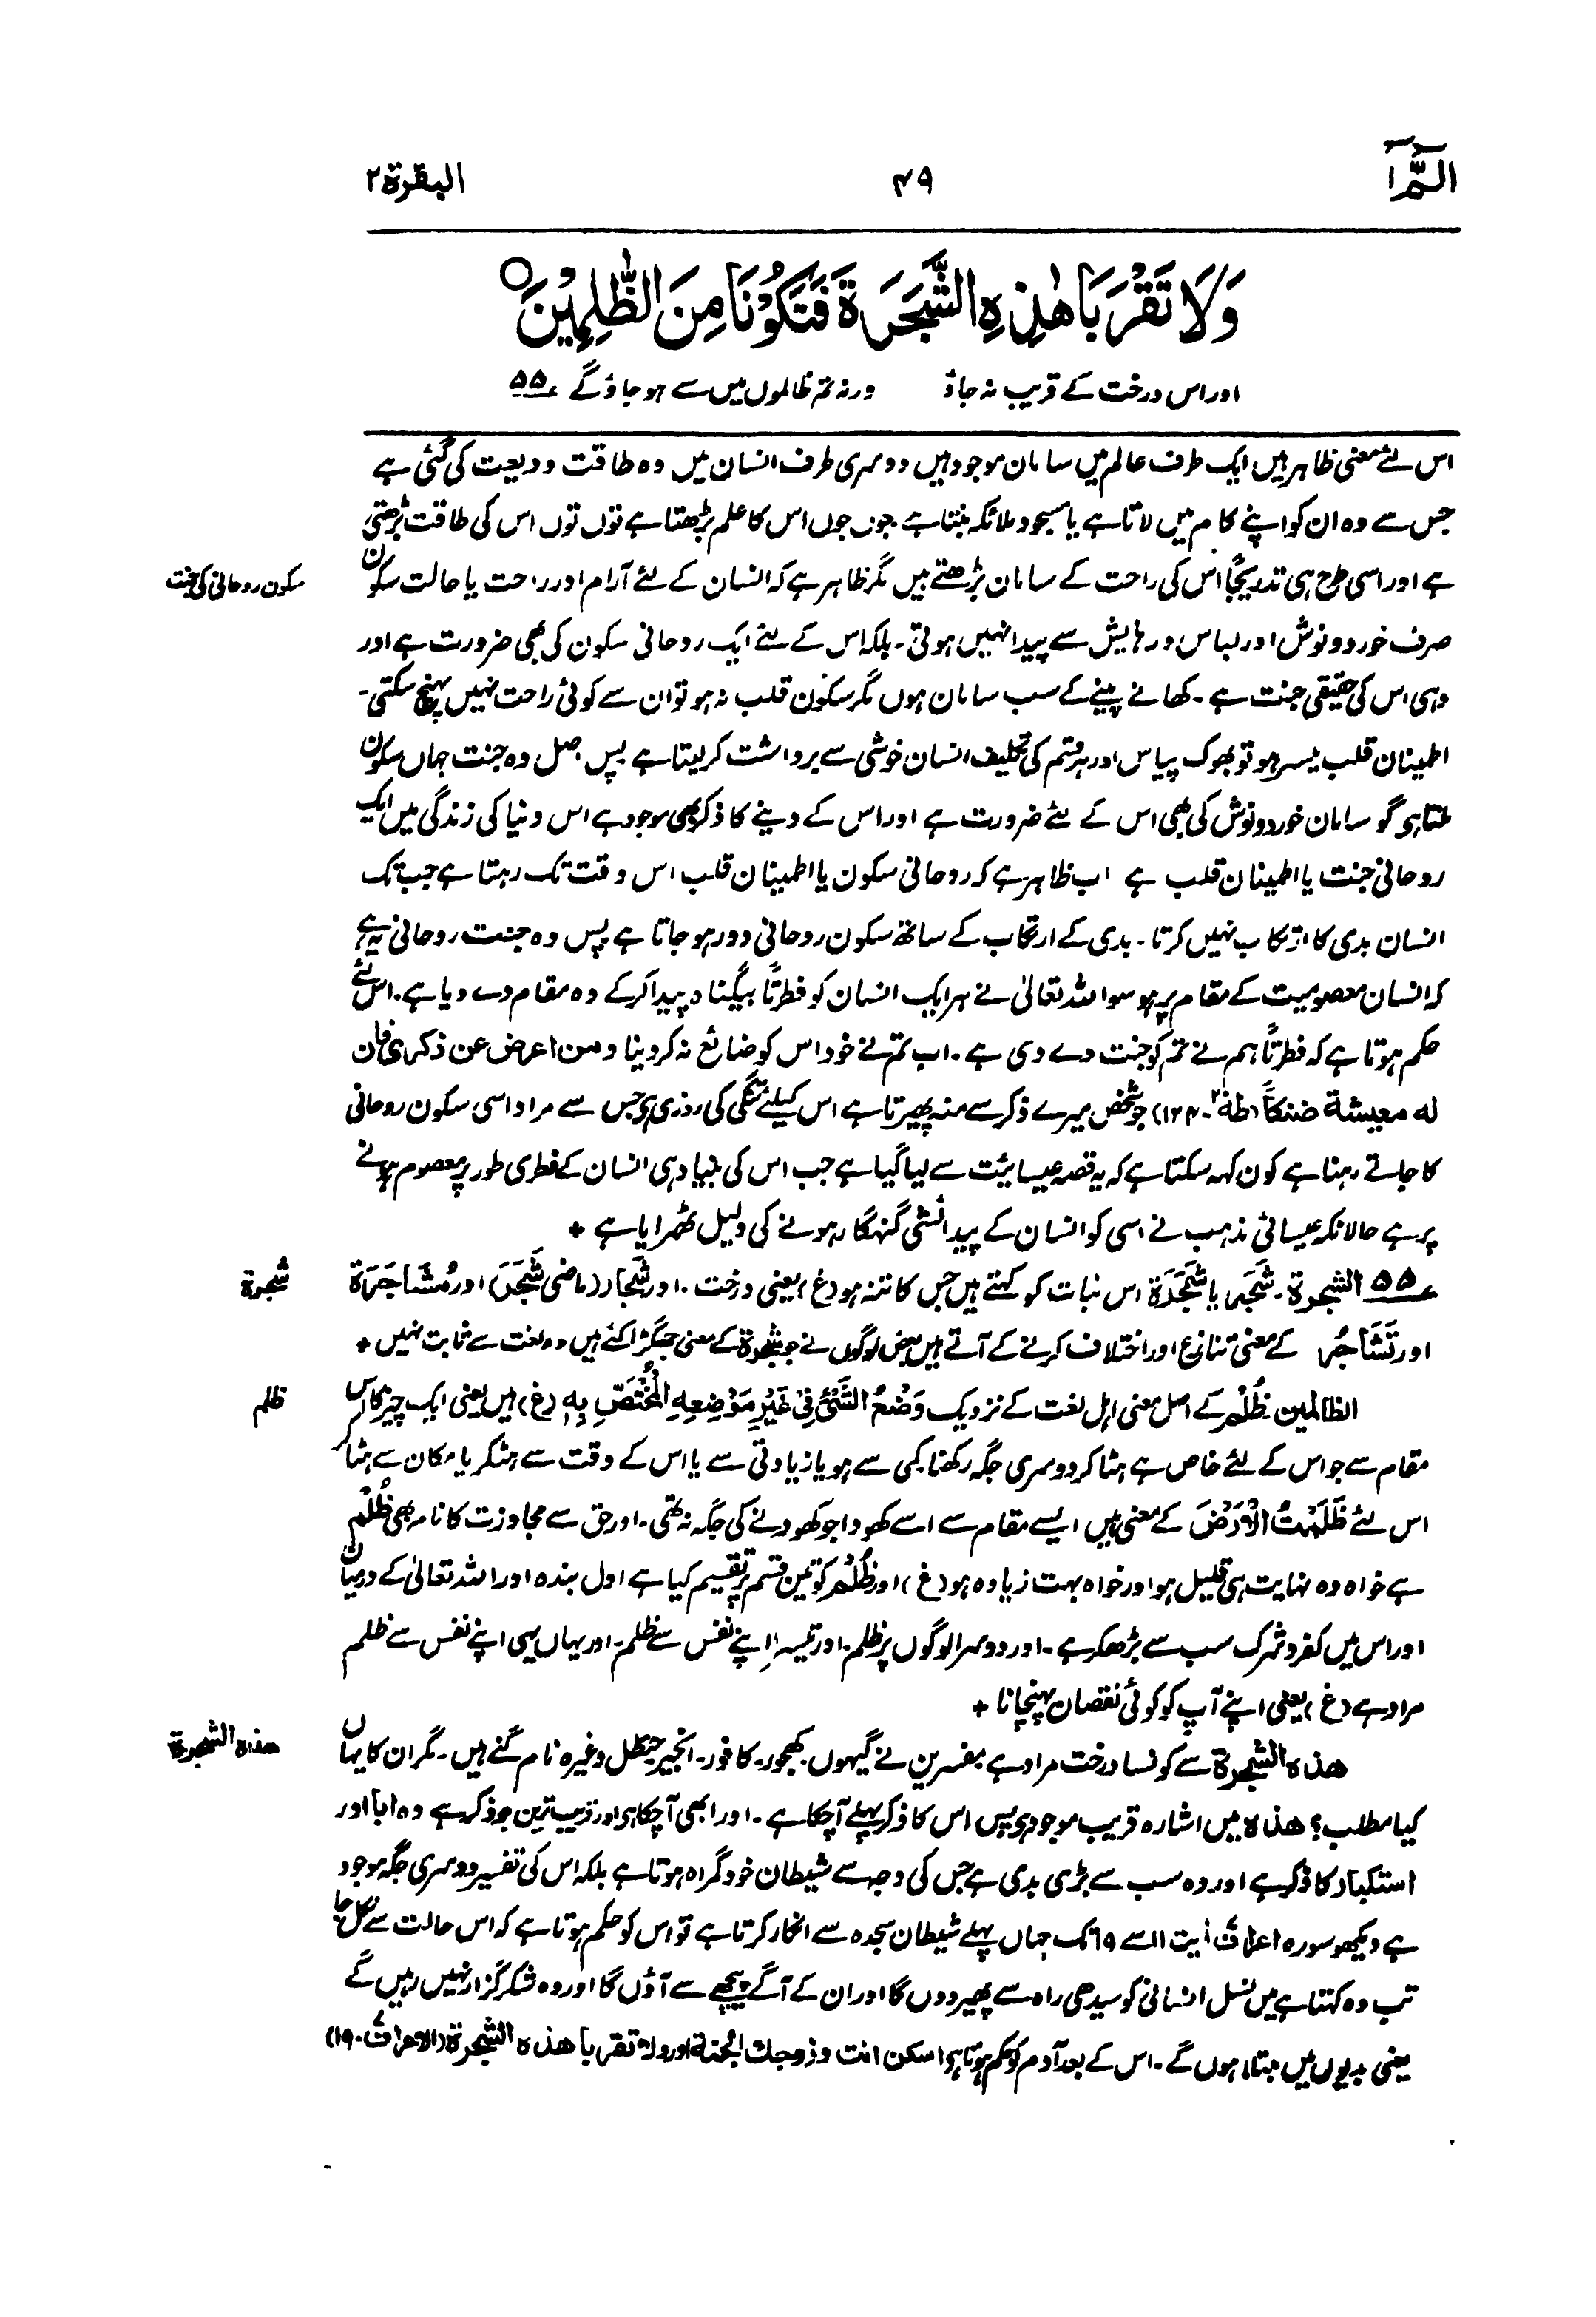 الٓمّٓ ١
۴۹
البقرۃ ۲
وَلَا تَقْرَبَا هٰذِهِ الشَّجَرَةَ فَتَكُوْنَا مِنَ الظّٰلِمِيْنَ ○
اور اس درخت کے قریب نہ جاؤ ورنہ تم ظالموں میں سے ہو جاؤ گے ۵۵
اس لئے معنی ظاہر ہیں ایک طرف عالم میں سامان موجود ہیں دوسری طرف انسان میں وہ طاقت ودیعت کی گئی ہے
جس سے وہ ان کو اپنے کام میں لاتا ہے یا مسجود ملائکہ بنتا ہے جوں جوں اس کا علم بڑھتا ہے توں توں اس کی طاقت بڑھتی
ہے اور اسی طرح ہی تدریجًا اس کی راحت کے سامان بڑھتے ہیں مگر ظاہر ہے کہ انسان کے لئے آرام اور راحت یا حالت سکون
سکون روحانی کی جنت
صرف خوردونوش اور لباس و رہایش سے پیدا نہیں ہوتی۔ بلکہ اس کے لئے ایک روحانی سکون کی بھی ضرورت ہے اور
وہی اس کی حقیقی جنت ہے۔ کھانے پینے کے سب سامان ہوں مگر سکون قلب نہ ہو تو ان سے کوئی راحت نہیں پہنچ سکتی۔
اطمینان قلب میسر ہو تو بھوک پیاس اور ہر قسم کی تکلیف انسان خوشی سے برداشت کر لیتا ہے پس اصل وہ جنت جہاں سکون
ملتا ہی گو سامان خوردونوش کی بھی اس کے لئے ضرورت ہے اور اس کے دینے کا ذکر بھی موجود ہے اس دنیا کی زندگی میں ایک
روحانی جنت یا اطمینان قلب ہے اب ظاہر ہے کہ روحانی سکون یا اطمینان قلب اس وقت تک رہتا ہے جب تک
انسان بدی کا ارتکاب نہیں کرتا۔ بدی کے ارتکاب کے ساتھ سکون روحانی دور ہو جاتا ہے پس وہ جنت روحانی یہ ہے
کہ انسان معصومیت کے مقام پر ہو سو اللہ تعالیٰ نے ہر ایک انسان کو فطرتًا بیگناہ پیدا کرکے وہ مقام دے دیا ہے۔ اس لئے
حکم ہوتا ہے کہ فطرتًا ہم نے تم کو جنت دے دی ہے۔ اب تم نے خود اس کو ضائع نہ کر دینا ومن اعرض عن ذکری فان
له معیشة ضنکاً (طٰہٰ۔۱۲۴) جو شخص میرے ذکر سے منہ پھیرتا ہے اس کیلئے تنگی کی روزی ہی جس سے مراد اسی سکون روحانی
کا جاتے رہنا ہے کون کہہ سکتا ہے کہ یہ قصہ عیسائیت سے لیا گیا ہے جب اس کی بنیاد ہی انسان کے فطری طور پر معصوم ہونے
پر ہے حالانکہ عیسائی مذہب نے اسی کو انسان کے پیدائشی گنہگار ہونے کی دلیل ٹھہرایا ہے +
۵۵ الشجرۃ۔ شَجَر یا شَجَرَة اس نبات کو کہتے ہیں جس کا تنہ ہو (غ) یعنی درخت۔ اور شِجار (ماضی شَجَرَ) اور مُشَاجَرَة
شجرۃ
اور تَشَاجُر کے معنی تنازع اور اختلاف کرنے کے آتے ہیں بعض لوگوں نے جو شجرۃ کے معنی جھگڑا کئے ہیں وہ لغت سے ثابت نہیں +
الظالمین۔ ظُلْم کے اصل معنی اہل لغت کے نزدیک وَضْعُ الشَّیْءِ فِیْ غَیْرِ مَوْضِعِهِ الْمُخْتَصِّ بِهٖ (غ) ہیں یعنی ایک چیز کا اس
ظلم
مقام سے جو اس کے لئے خاص ہے ہٹا کر دوسری جگہ رکھنا کمی سے ہو یا زیادتی سے یا اس کے وقت سے ہٹکر یا مکان سے ہٹا کر
اس لئے ظَلَمْتُ الْاَرْضَ کے معنی ہیں ایسے مقام سے اسے کھودا جو کھودنے کی جگہ نہ تھی۔ اور حق سے مجاوزت کا نام بھی ظُلْم
ہے خواہ وہ نہایت ہی قلیل ہو اور خواہ بہت زیادہ ہو (غ) اور ظُلْم کو تین قسم پر تقسیم کیا ہے اول بندہ اور اللہ تعالیٰ کے درمیان
اور اس میں کفر و شرک سب سے بڑھکر ہے۔ اور دوسرا لوگوں پر ظلم۔ اور تیسرا اپنے نفس سے ظلم۔ اور یہاں یہی اپنے نفس سے ظلم
مراد ہے (غ) یعنی اپنے آپ کو کوئی نقصان پہنچانا +
ھذہ الشجرۃ سے کونسا درخت مراد ہے مفسرین نے گیہوں۔ کھجور۔ کافور۔ انجیر۔ حنظل وغیرہ نام گنے ہیں۔ مگر ان کا یہاں
ھذہ الشجرۃ
کیا مطلب؟ ھذہ میں اشارہ قریب موجود ہی پس اس کا ذکر پہلے آچکا ہے۔ اور ابھی آچکا ہی اور قریب ترین جو ذکر ہے وہ ابا اور
استکبار کا ذکر ہے اور وہ سب سے بڑی بدی ہے جس کی وجہ سے شیطان خود گمراہ ہوتا ہے بلکہ اس کی تفسیر دوسری جگہ موجود
ہے دیکھو سورہ اعراف آیت ۱۱ سے ۱۹ تک جہاں پہلے شیطان سجدہ سے انکار کرتا ہے تو اس کو حکم ہوتا ہے کہ اس حالت سے نکل جا
تب وہ کہتا ہے میں نسل انسانی کو سیدھی راہ سے پھیر دوں گا اور ان کے آگے پیچھے سے آؤں گا اور وہ شکر گزار نہیں رہیں گے
یعنی بدیوں میں مبتلا ہوں گے۔ اس کے بعد آدم کو حکم ہوتا ہی اسکن انت و زوجك الجنة اور ولا تقربا هذه الشجرة (الاعراف۔۱۹)